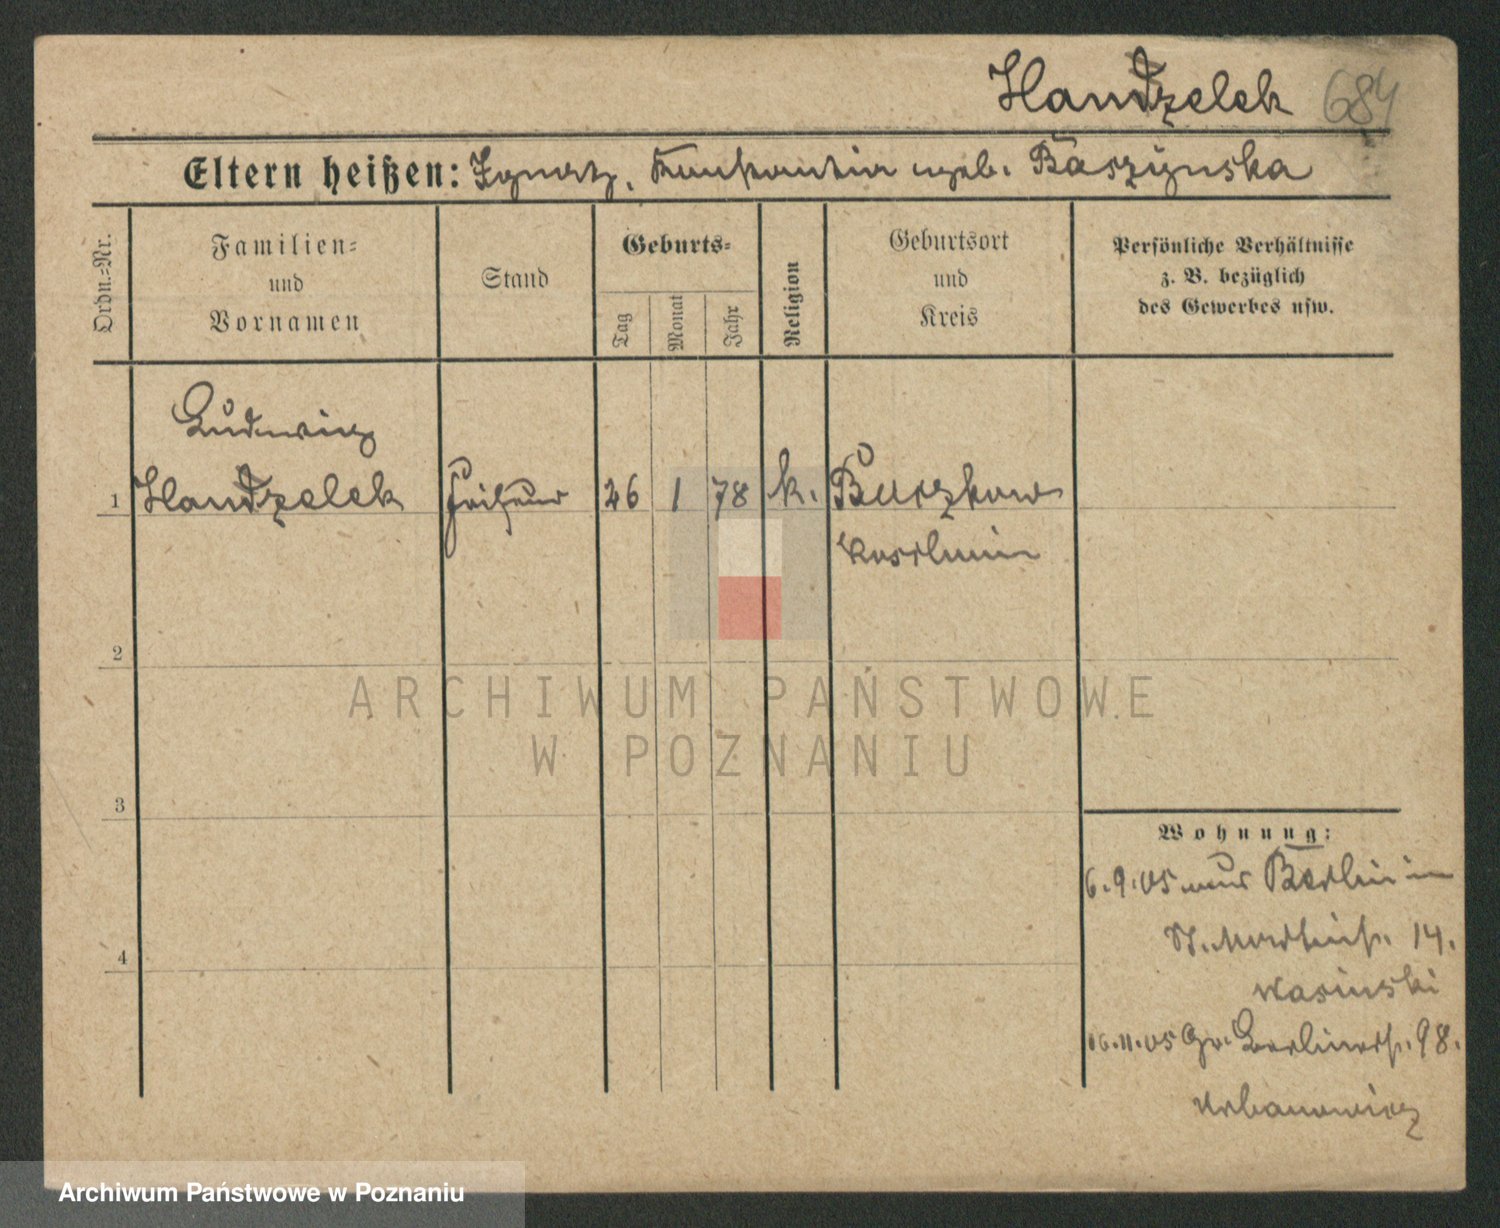 Handzelek 684
Eltern heißen: Ignatz, Konstantia geb. Baszynska
Ordn.-Nr.
Familien-
und
Vornamen
Stand
Geburts-
Tag
Monat
Jahr
Religion
Geburtsort
und
Kreis
Persönliche Verhältnisse
z. B. bezüglich
des Gewerbes usw.
Ludwig
1 Handzelek Friseur 26 1 78 k. Burzkow
Koschmin
2
ARCHIWUM PAŃSTWOWE
W POZNANIU
3
Wohnung:
6.9.05 aus Berlin in
St. Martinstr. 14.
Wasinski
16.11.05 Gr. Berlinerstr. 98.
Urbanowicz
4
Archiwum Państwowe w Poznaniu